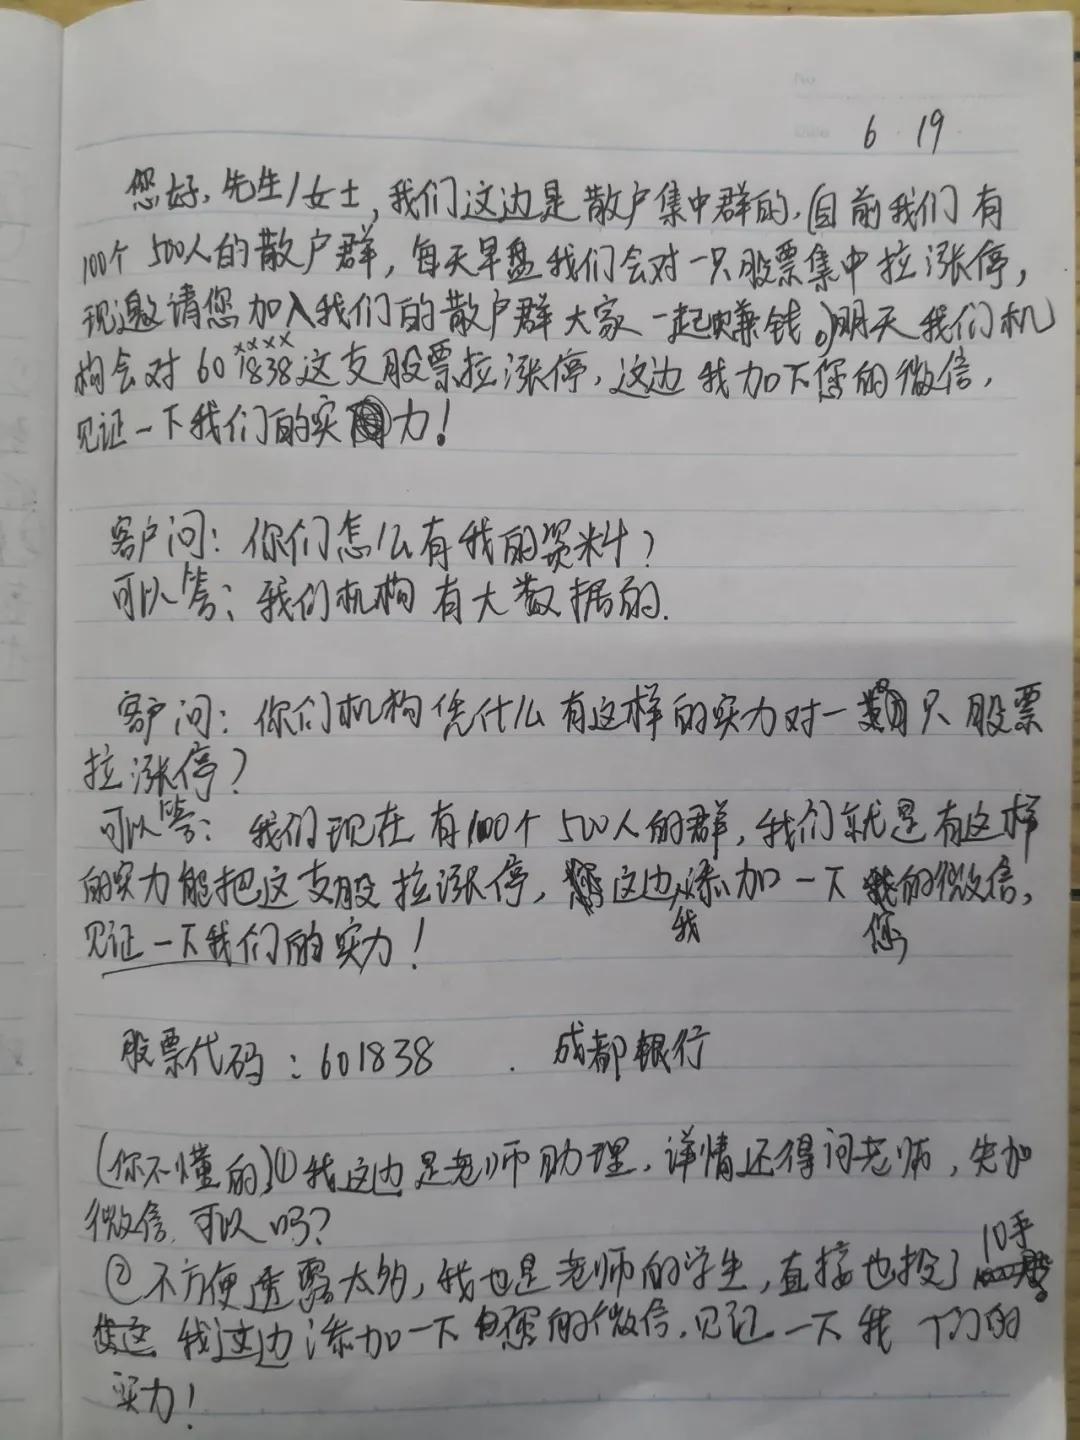 No
Date 6 19
您好,先生/女士,我们这边是散户集中群的,目前我们有
100个500人的散户群,每天早盘我们会对一只股票集中拉涨停,
现邀请您加入我们的散户群大家一起赚钱。明天我们机
xxxx
构会对601838这支股票拉涨停,这边我加下您的微信,
见证一下我们的实力!
客户问:你们怎么有我的资料?
可以答:我们机构有大数据的.
客户问:你们机构凭什么有这样的实力对一只股票
拉涨停?
可以答:我们现在有100个500人的群,我们就是有这样
的实力能把这支股拉涨停,这边我添加一下您的微信,
见证一下我们的实力!
股票代码:601838 . 成都银行
(你不懂的)①我这边是老师助理,详情还得问老师,先加
微信,可以吗?
②不方便透露太多,我也是老师的学生,直接也投了10手
我这边添加一下您的微信,见证一下我们的
实力!